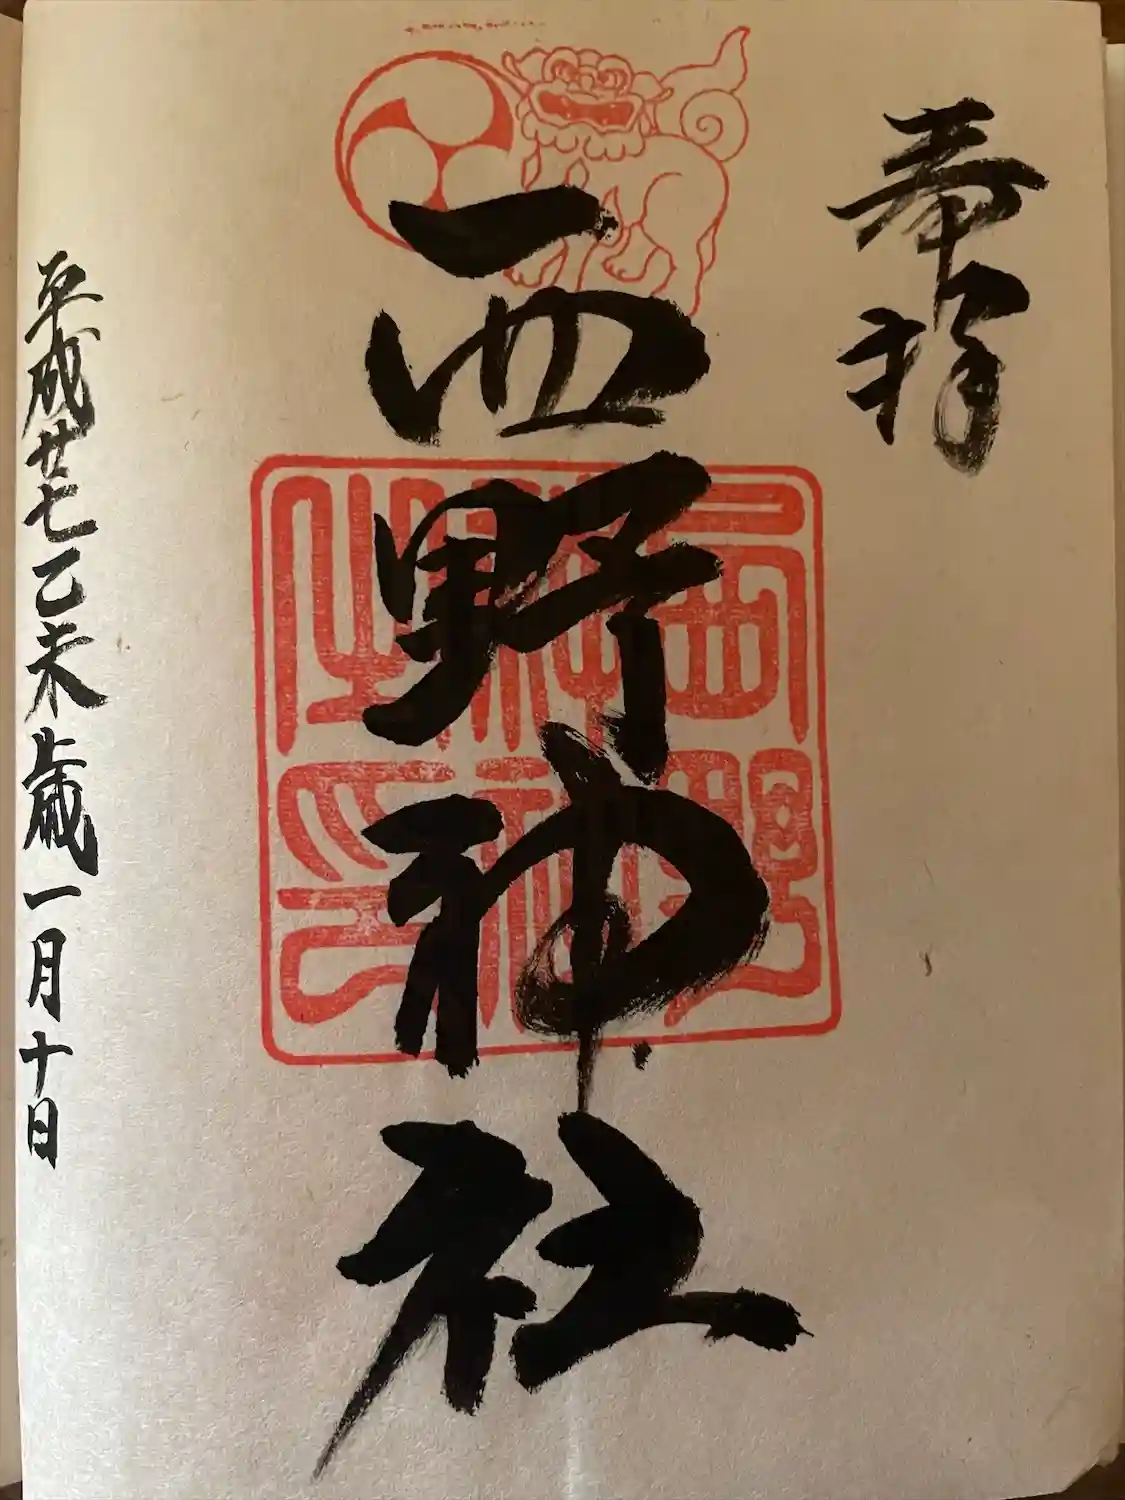 奉拝
西野神社
平成廿七乙未歳一月十日
西野
神社
之印